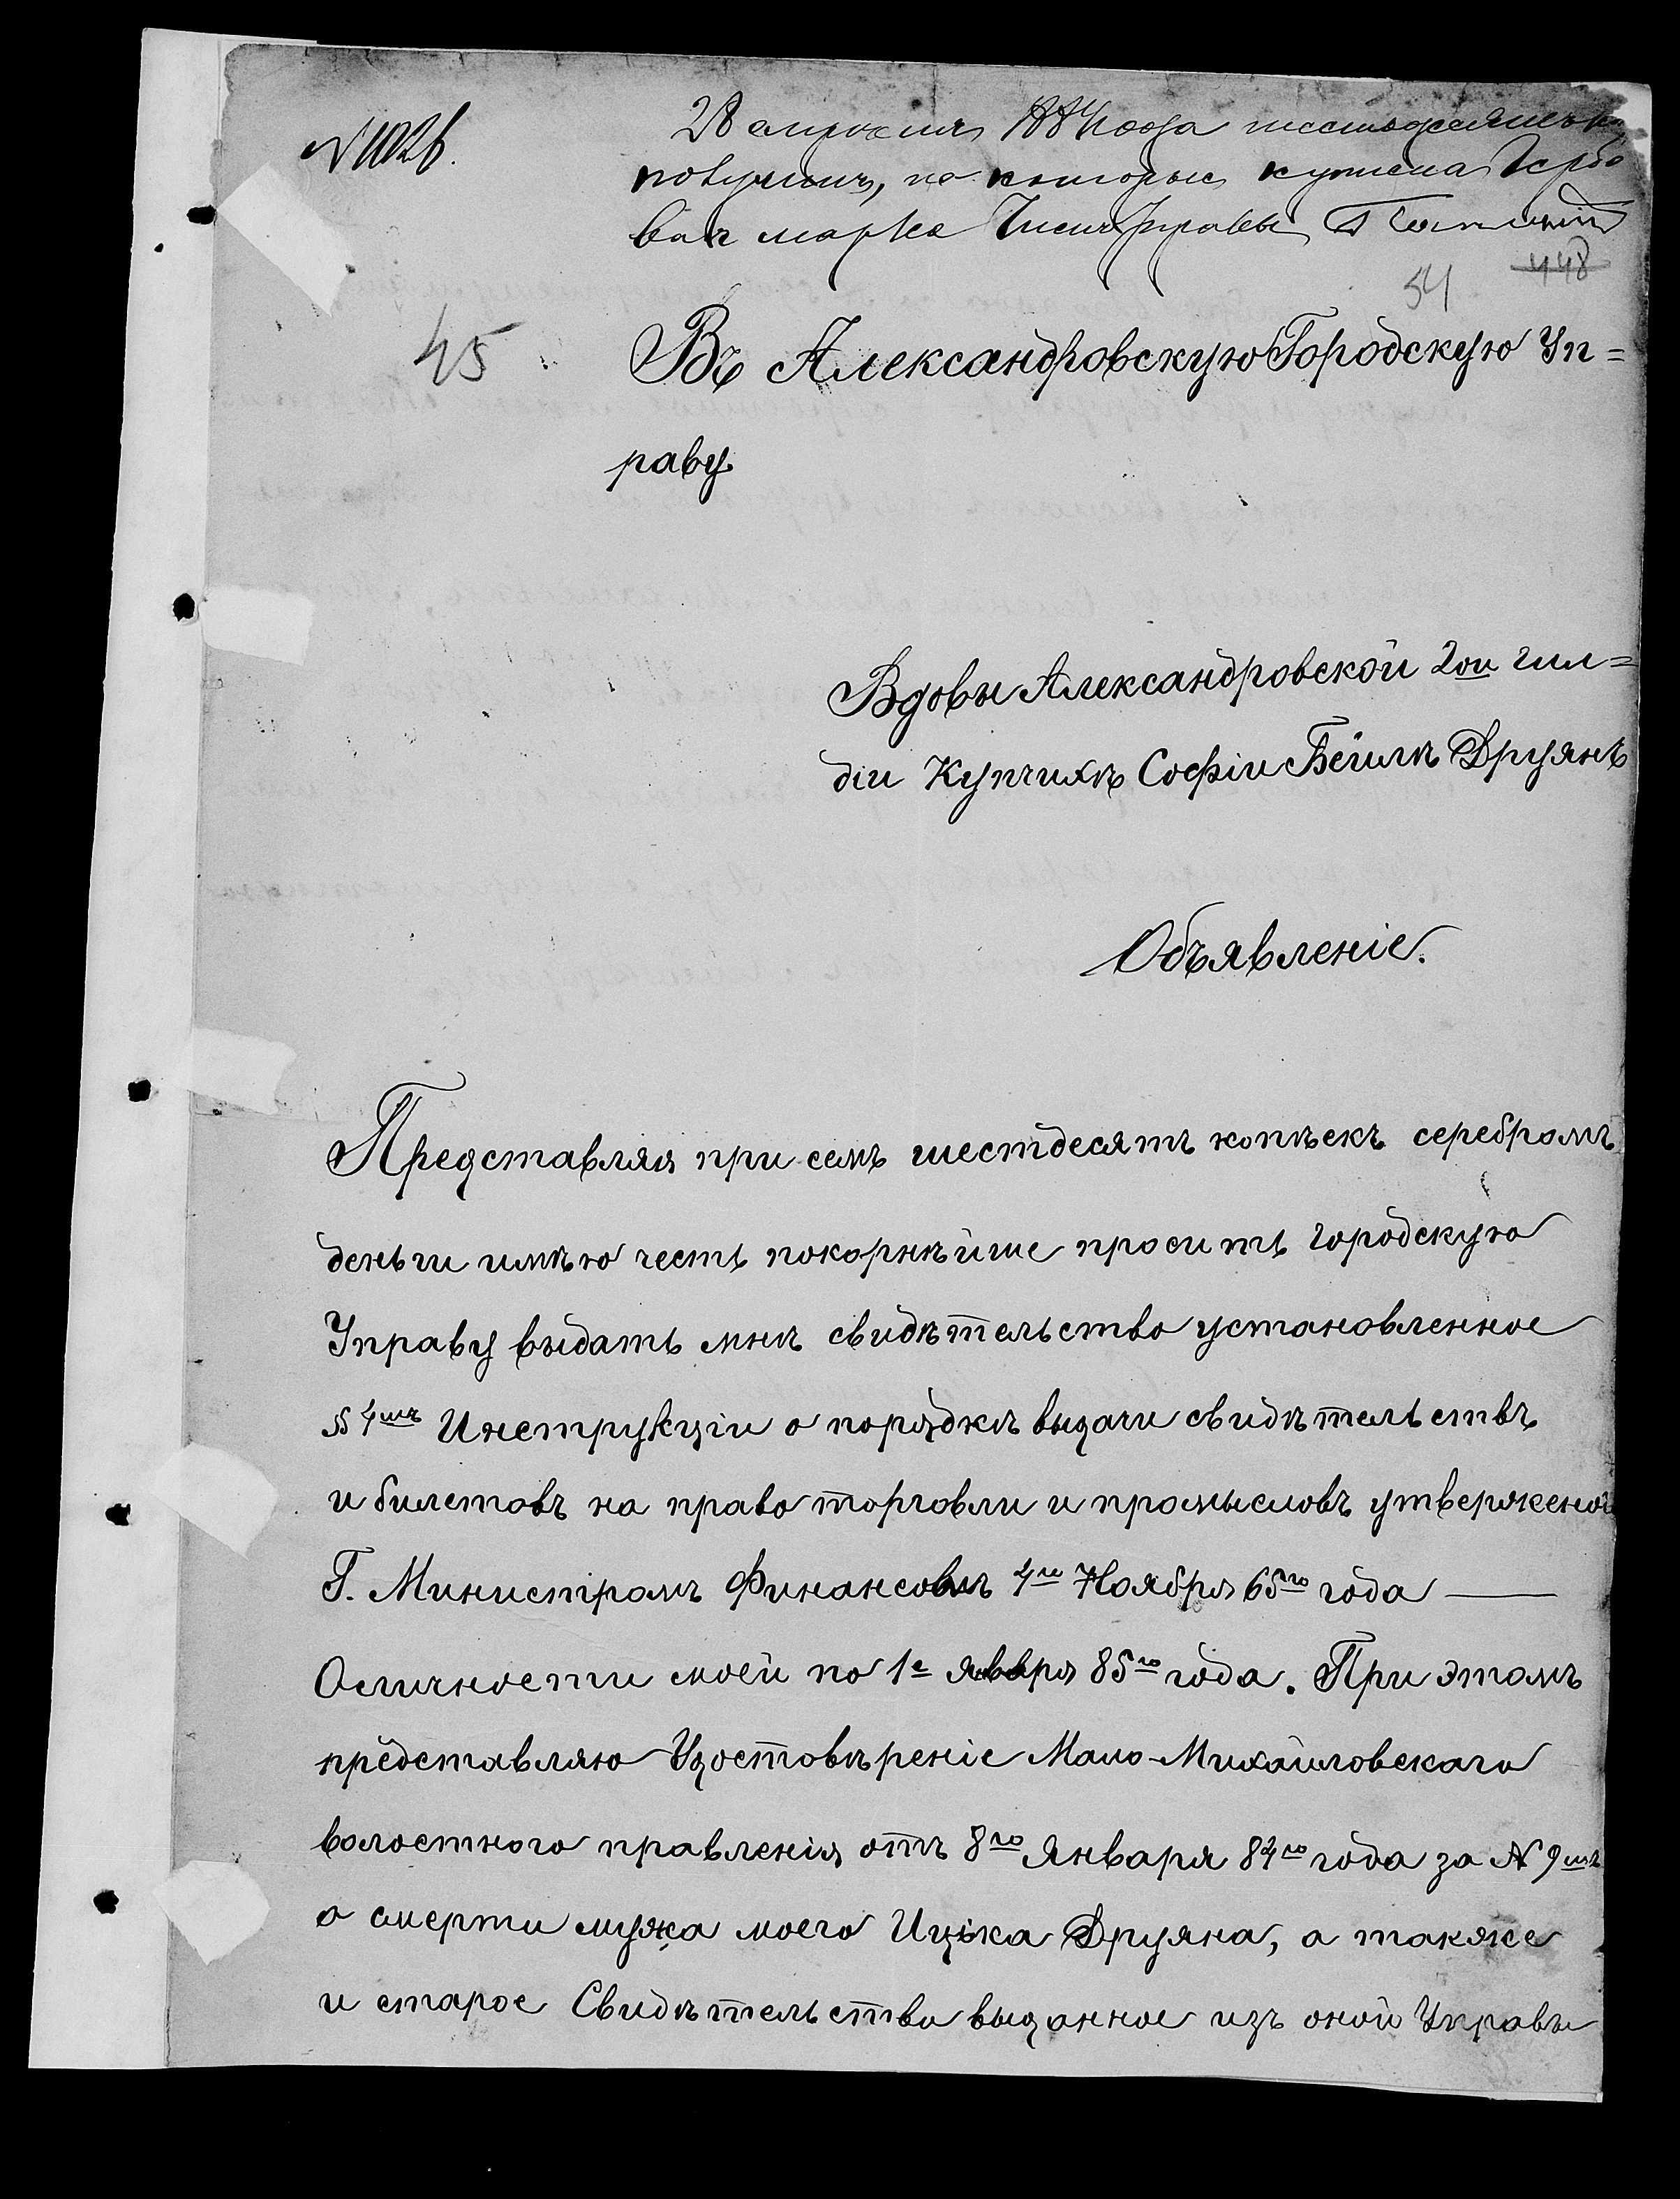 № 1026.
28 апреля 1884 года шестьдесятъ к.
получилъ, на которые куплена Гербо
вая марка Членъ Управы
448
54
45
Въ Александровскую Городскую Уп=
раву
Вдовы Александровской 2ой гил=
діи Купчихѣ Софіи Бейлѣ Друянъ
Объявленіе.
Представляя при семъ шестдесятъ копѣекъ серебромъ
деньги имѣю честь покорнѣйше просить городскую
Управу выдать мнѣ свидѣтельство установленное
§ 4мъ Инструкціи о порядкѣ выдачи свидѣтельствъ
и билетовъ на право торговли и промысловъ утверженой
Г. Министромъ Финансовъ 4го Ноября 65го года —
О личности моей по 1е января 85го года. При этомъ
представляю Удостовѣреніе Мало-Михайловскаго
волостного правленія отъ 8го Января 84го года за № 9мъ
о смерти мужа моего Ицька Друяна, а также
и старое Свидѣтельство выданное изъ оной Управы